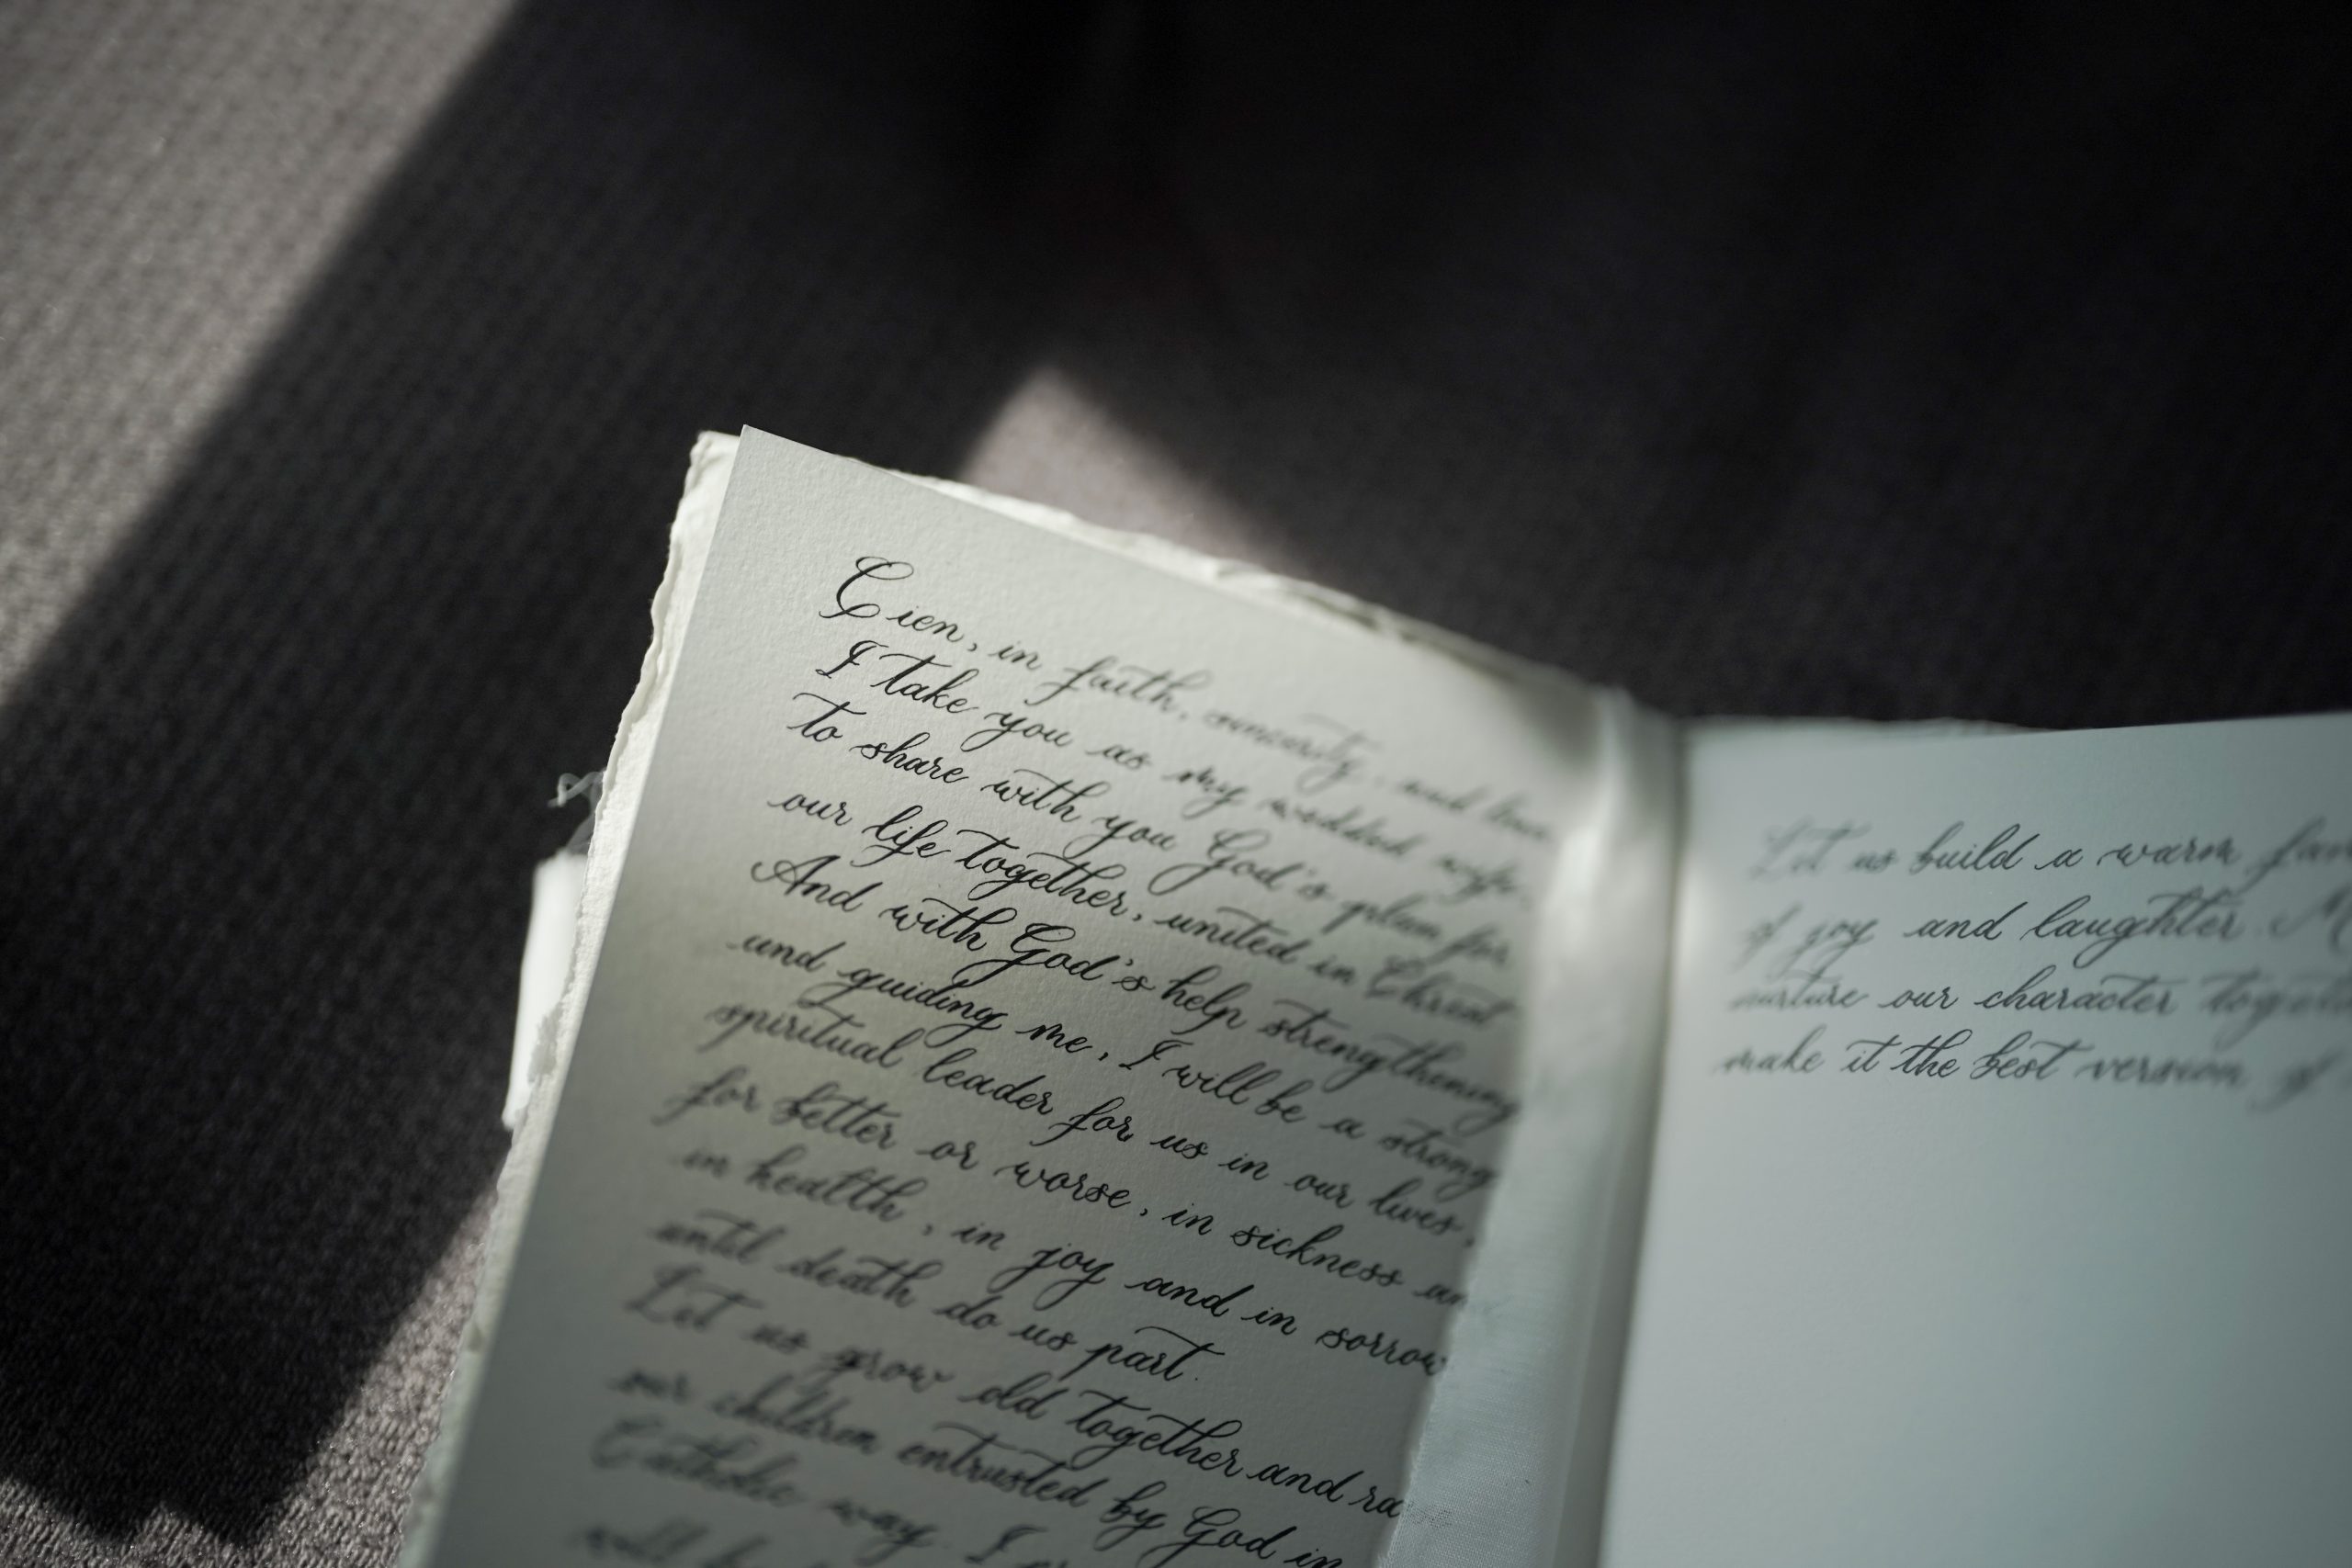 Cien, in faith, sincerity, and love
I take you as my wedded wife,
to share with you God's plan for
our life together, united in Christ
And with God's help strengthening
and guiding me, I will be a strong
spiritual leader for us in our lives,
for better or worse, in sickness and
in health, in joy and in sorrow
until death do us part.
Let us grow old together and
our children entrusted by God in
Catholic way. I
will be
Let us build a warm
of joy and laughter.
nurture our character
make it the best version of